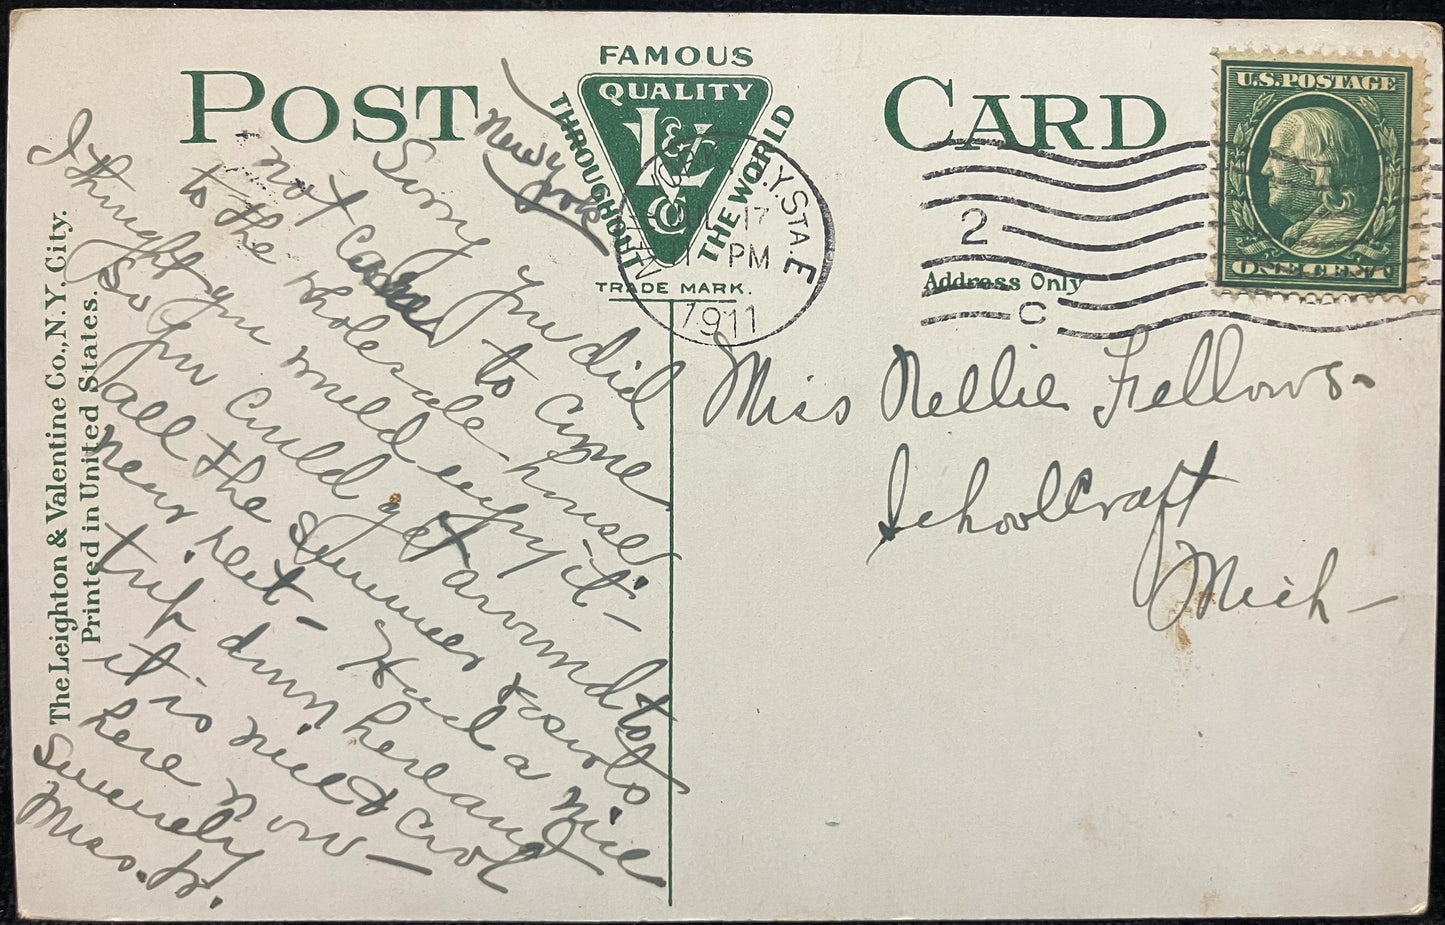 POST CARD
FAMOUS
QUALITY
L & V Co
THROUGHOUT THE WORLD
TRADE MARK.
U.S. POSTAGE
ONE CENT
N.Y. STA. E
17
1 PM
1911
2
C
Address Only
The Leighton & Valentine Co., N.Y. City.
Printed in United States.
New York
Sorry you did
not care to come
to the wholesale house
I thought you would enjoy it -
So you could get around to
all the Summer resorts
near here - Had a nice
trip down here and
it is nice & cool
here now -
Sincerely
Miss. Jr.
Miss Nellie Fellows.
Schoolcraft
Mich -